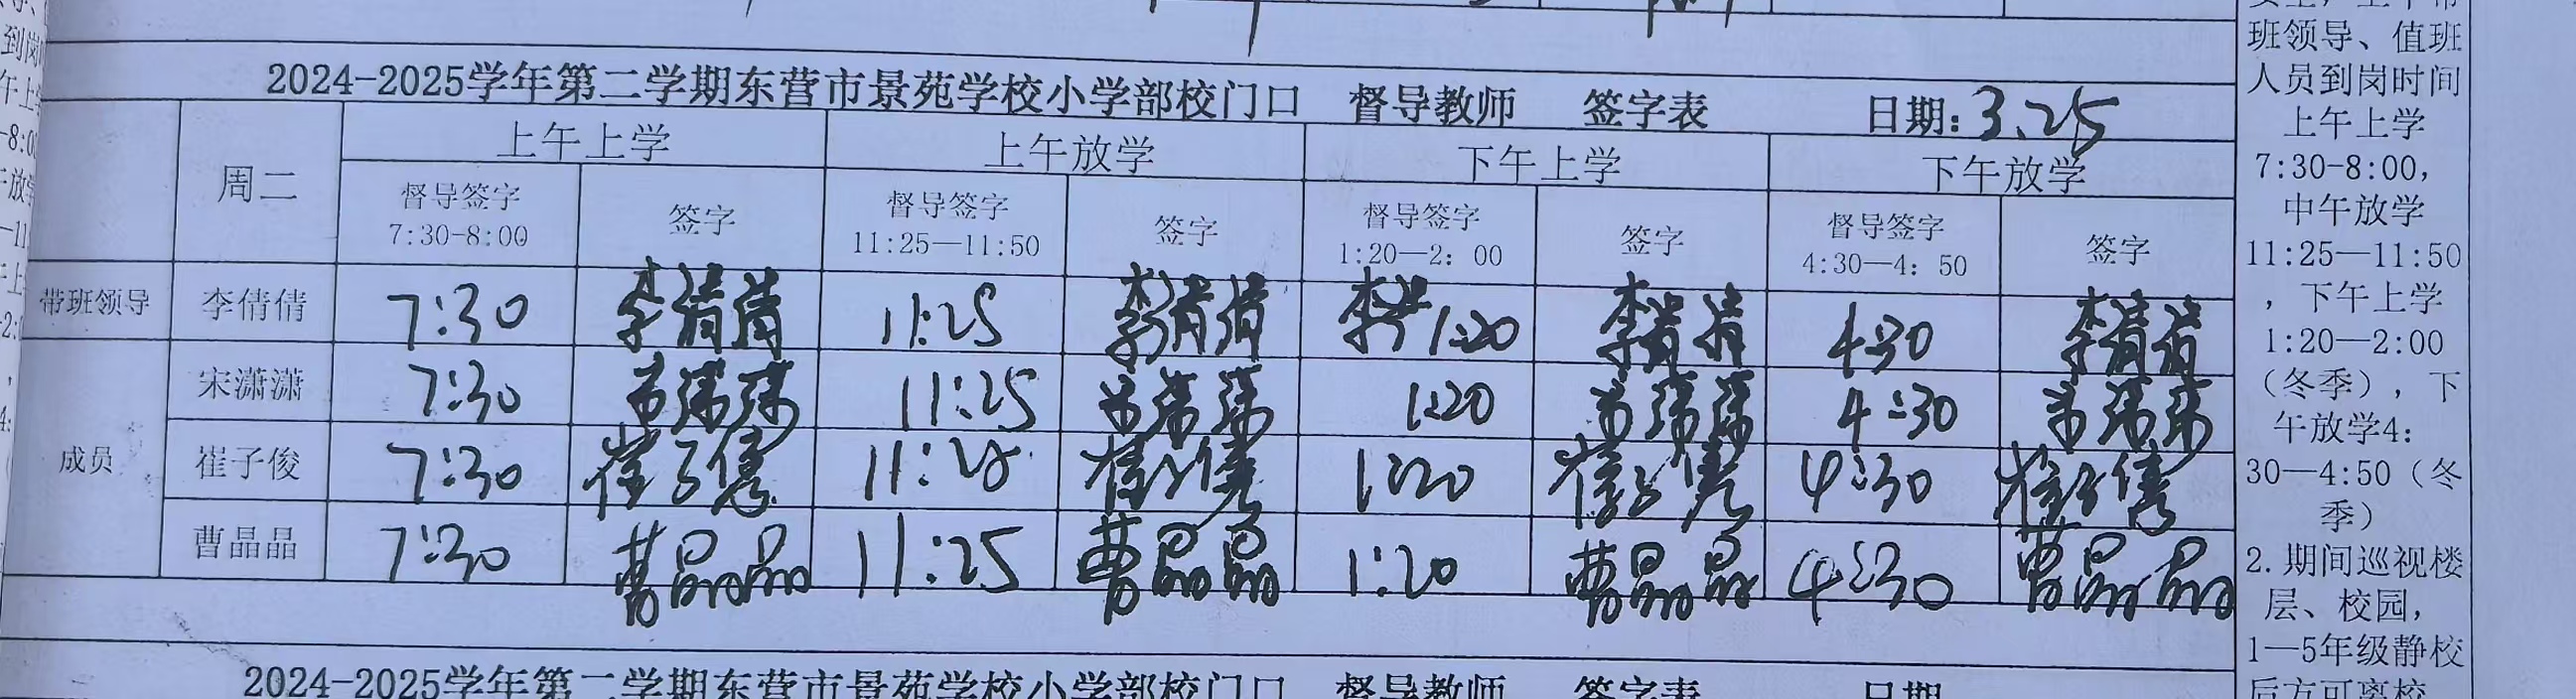 2024-2025学年第二学期东营市景苑学校小学部校门口 督导教师 签字表 日期:3.25
周二 上午上学 上午放学 下午上学 下午放学
督导签字 签字 督导签字 签字 督导签字 签字 督导签字 签字
7:30-8:00 11:25—11:50 1:20—2: 00 4:30—4: 50
带班领导 李倩倩 7:30 李倩倩 11:25 李倩倩 1:20 李倩倩 4:30 李倩倩
宋潇潇 7:30 11:25 1:20 4:30
成员 崔子俊 7:30 崔子俊 11:25 崔子俊 1:20 崔子俊 4:30 崔子俊
曹晶晶 7:30 曹晶晶 11:25 曹晶晶 1:20 曹晶晶 4:30 曹晶晶
2024-2025学年第二学期东营市景苑学校小学部校门口 督导教师 签字表 日期
班领导、值班
人员到岗时间
上午上学
7:30-8:00,
中午放学
11:25—11:50
,下午上学
1:20—2:00
(冬季),下
午放学4:
30—4:50(冬
季)
2.期间巡视楼
层、校园,
1—5年级静校
后方可离校